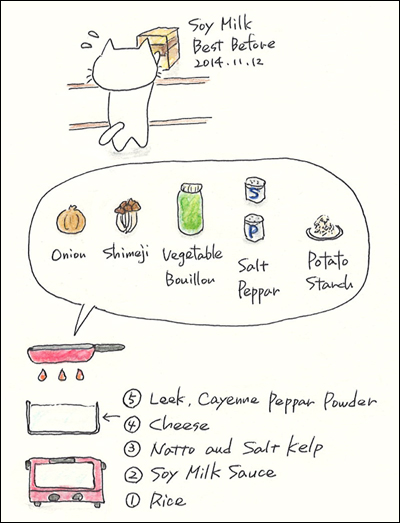 Soy Milk
Best Before
2014.11.12
S
P
Onion
Shimeji
Vegetable
Bouillon
Salt
Peppar
Potato
Starch
⑤ Leek, Cayenne Peppar Powder
④ Cheese
③ Natto and Salt Kelp
② Soy Milk Sauce
① Rice